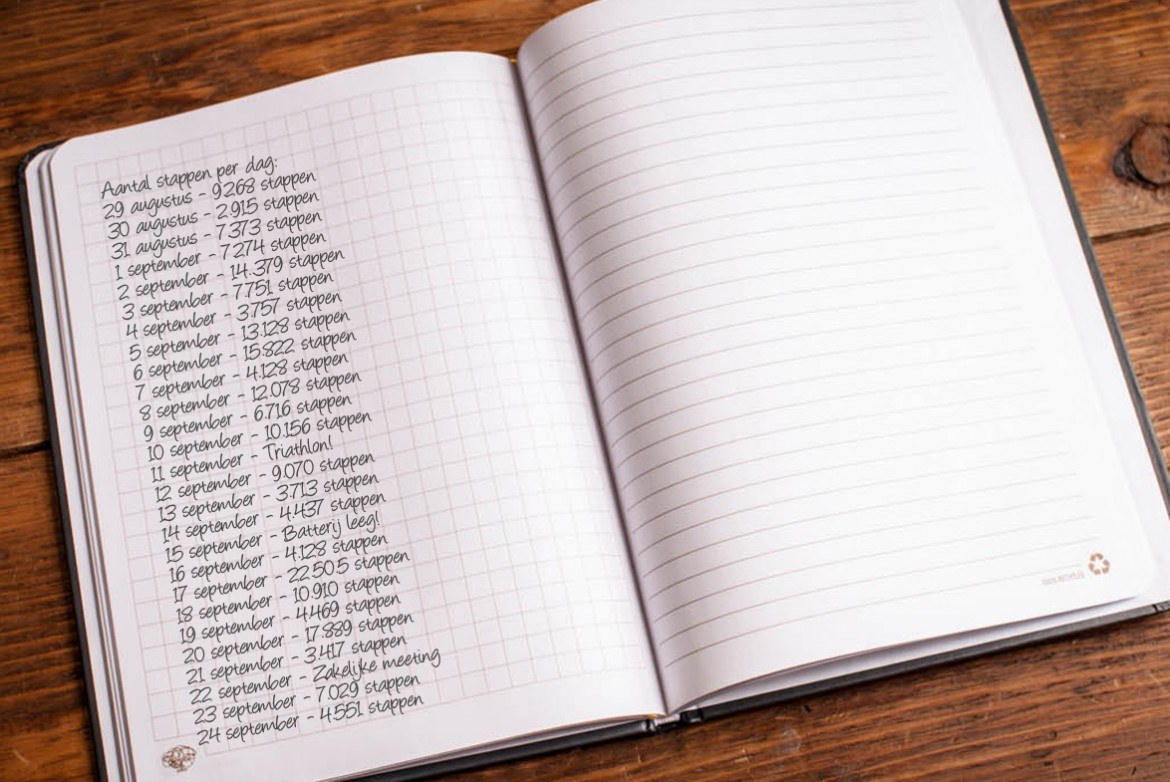 Aantal stappen per dag:
29 augustus - 9.268 stappen
30 augustus - 2.915 stappen
31 augustus - 7.373 stappen
1 september - 7.274 stappen
2 september - 14.379 stappen
3 september - 7.751 stappen
4 september - 3.757 stappen
5 september - 13.128 stappen
6 september - 15.822 stappen
7 september - 4.128 stappen
8 september - 12.078 stappen
9 september - 6.716 stappen
10 september - 10.156 stappen
11 september - Triathlon!
12 september - 9.070 stappen
13 september - 3.713 stappen
14 september - 4.437 stappen
15 september - Batterij leeg!
16 september - 4.128 stappen
17 september - 22.505 stappen
18 september - 10.910 stappen
19 september - 4.469 stappen
20 september - 17.889 stappen
21 september - 3.417 stappen
22 september - Zakelijke meeting
23 september - 7.029 stappen
24 september - 4.551 stappen